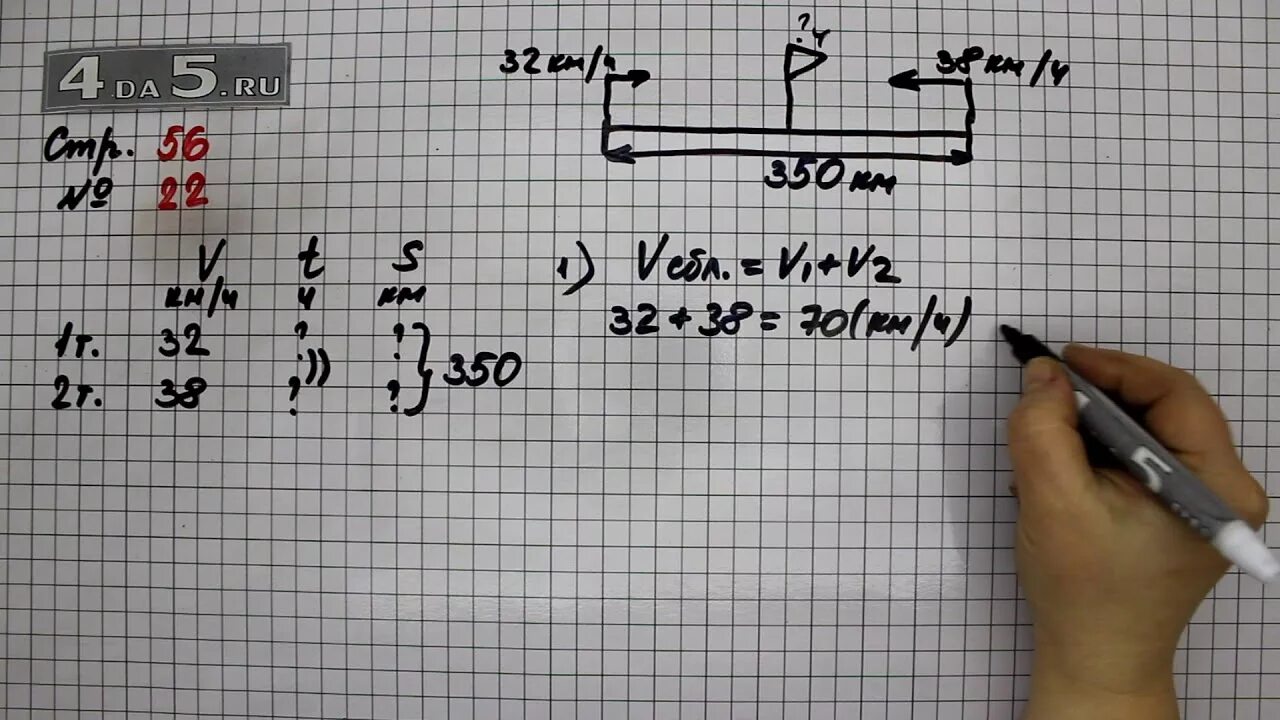 4DA5.RU
Стр. 56
№ 22
32 км/ч
? ч
38 км/ч
350 км
V t S
км/ч ч км
1т. 32 ? ?
2т. 38 ? ?
350
1) Vсбл. = V₁ + V₂
32 + 38 = 70 (км/ч)
5